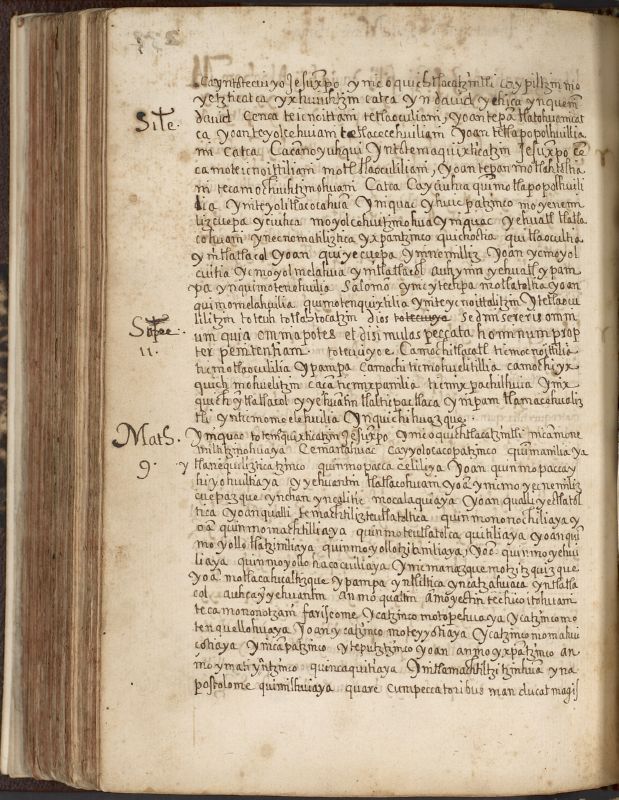 Cayntotecuiyo Jesuxp̄o ynic oquichtlacatzintli caypiltzin mo
yetzticatca yxhuiuhtzin catca yn david yehica ynquenin
david Cenca teicnoittani tetlaocoliani, yoan tepā tlatohuanicat
Site.
ca yoanteyolcehuani tetlacecehuiliani yoan tetlapopolhuilia
ni catca Cacānoyuhqui yntotemaquixticatzin Jesuxp̄o cē
ca moteicnoittiliani motetlaoculiliani, yoan tepan motlahtoltia
ni tecamochiuhtzinohuani Catca Cayciuhca quimotlapopolhuili
lia ynteyolitlacocahuā yniquac yhuicpatzinco moyenem
lizcuepa yciuhca moyolcehuitzinohua yniquac yehuatl tlatla
cohuani ynecnomatiliztica yxpantzinco quichoctia quitlaocultia
yntlatlacol yoan quiyecuepa ynnemiliz yoan ycmoyol
cuitia ycmoyolmelahua yntlatlacol auhynin yehuatl ypam
pa ynquimotenehuilia Salomō ynicytechpa motlatoltia yoan
quimomelahuilia quimotenquixtilia ynteycnoittalitzin yteTlaocu
lilitzin toteuh totlahtocatzin dios totecuiyo Sed misereris omni
Sapiē.
um quia omnia potes et disimulas peccata hominum prop
11.
ter penitentiam totecuiyoe Camochitlacatl ticmocnoittilia
ticmotlaocolilia ypampa camochi ticmohuelitilia camochi yx
quich mohuelitzin caca ticmixpanilia ticmixpachilhuia ynix
quich ytlatlacol yyehuātin tlalticpactlaca ynipam tlamacehualiz
tli ynticmomelehuilia ynquichihuazque.
Math.
Ynīquac totemaquixticatzin Jesuxp̄o ynic oquichtlacatzintli nicā mone
9.
militzinohuaya Cemanahuac cayyolocacopatzinco quimanilia ya
ytlanequilizticatzinco quinmopacca celiliya yoan quinmopaccay
hiyohuiltiaya yyehuantin tlatlacohuani yoā ynicmo yecnemiliz
cuepazque ynchan yncalitic mocalaquiaya yoan qualli yectlatol
tica yoanqualli temachtilizteutlatoltica quinmononochiliaya y
oā quinmomachtiliaya quinmoteutlatolcaquitiliaya yoanqui
mo yollotlatziniliaya quinmoyollotzitziniliaya, yoā quinmoyehui
liaya quinmoyollo nacocuiliaya ynicmanazque motzitzquizque
yoā motlacahualtizque ypampa yntlilitica yncatzahuaca yntlatla
col auhcayyehuantin anmo qualtin amoyectin techicoitohuani
tecamononotzani fariseome ycatzinco motopehuaya ycatzincomo
tenquellohuaya yoan ycatzinco moteyyotiaya ycatzinco momahui
çotiaya ynicapatzinco yteputztzinco yoan anmo yxpātzinco an
mo ymatiyātzinco quincaquitiaya ynitlamachtiltzitzinhuā yna
postolome quimilhuiaya quare cum peccatoribus manducat magis